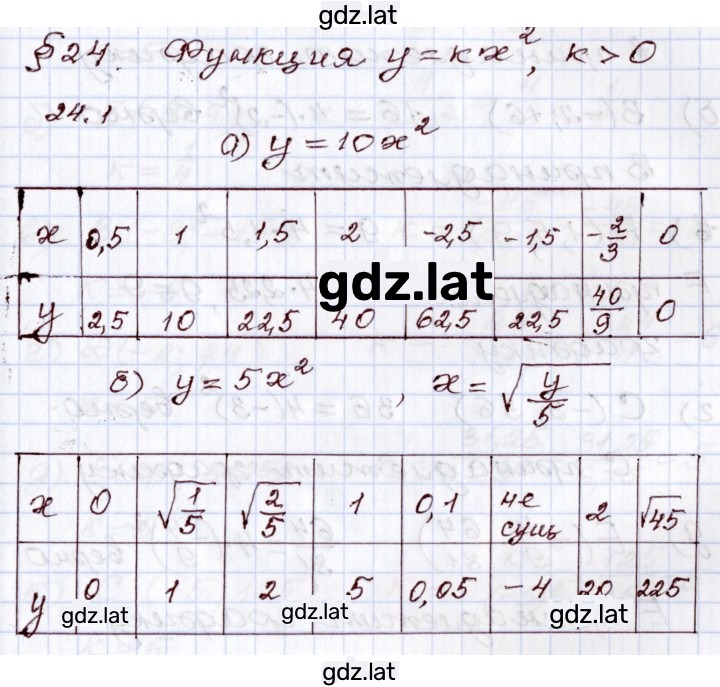 gdz.lat
§24. Функция y=kx², k>0
24.1
а) y=10x²
x 0,5 1 1,5 2 -2,5 -1,5 -2/3 0
gdz.lat
y 2,5 10 22,5 40 62,5 22,5 40/9 0
б) y=5x², x=√(y/5)
x 0 √(1/5) √(2/5) 1 0,1 не сущ 2 √45
y 0 1 2 5 0,05 -4 20 225
gdz.lat gdz.lat gdz.lat
gdz.lat